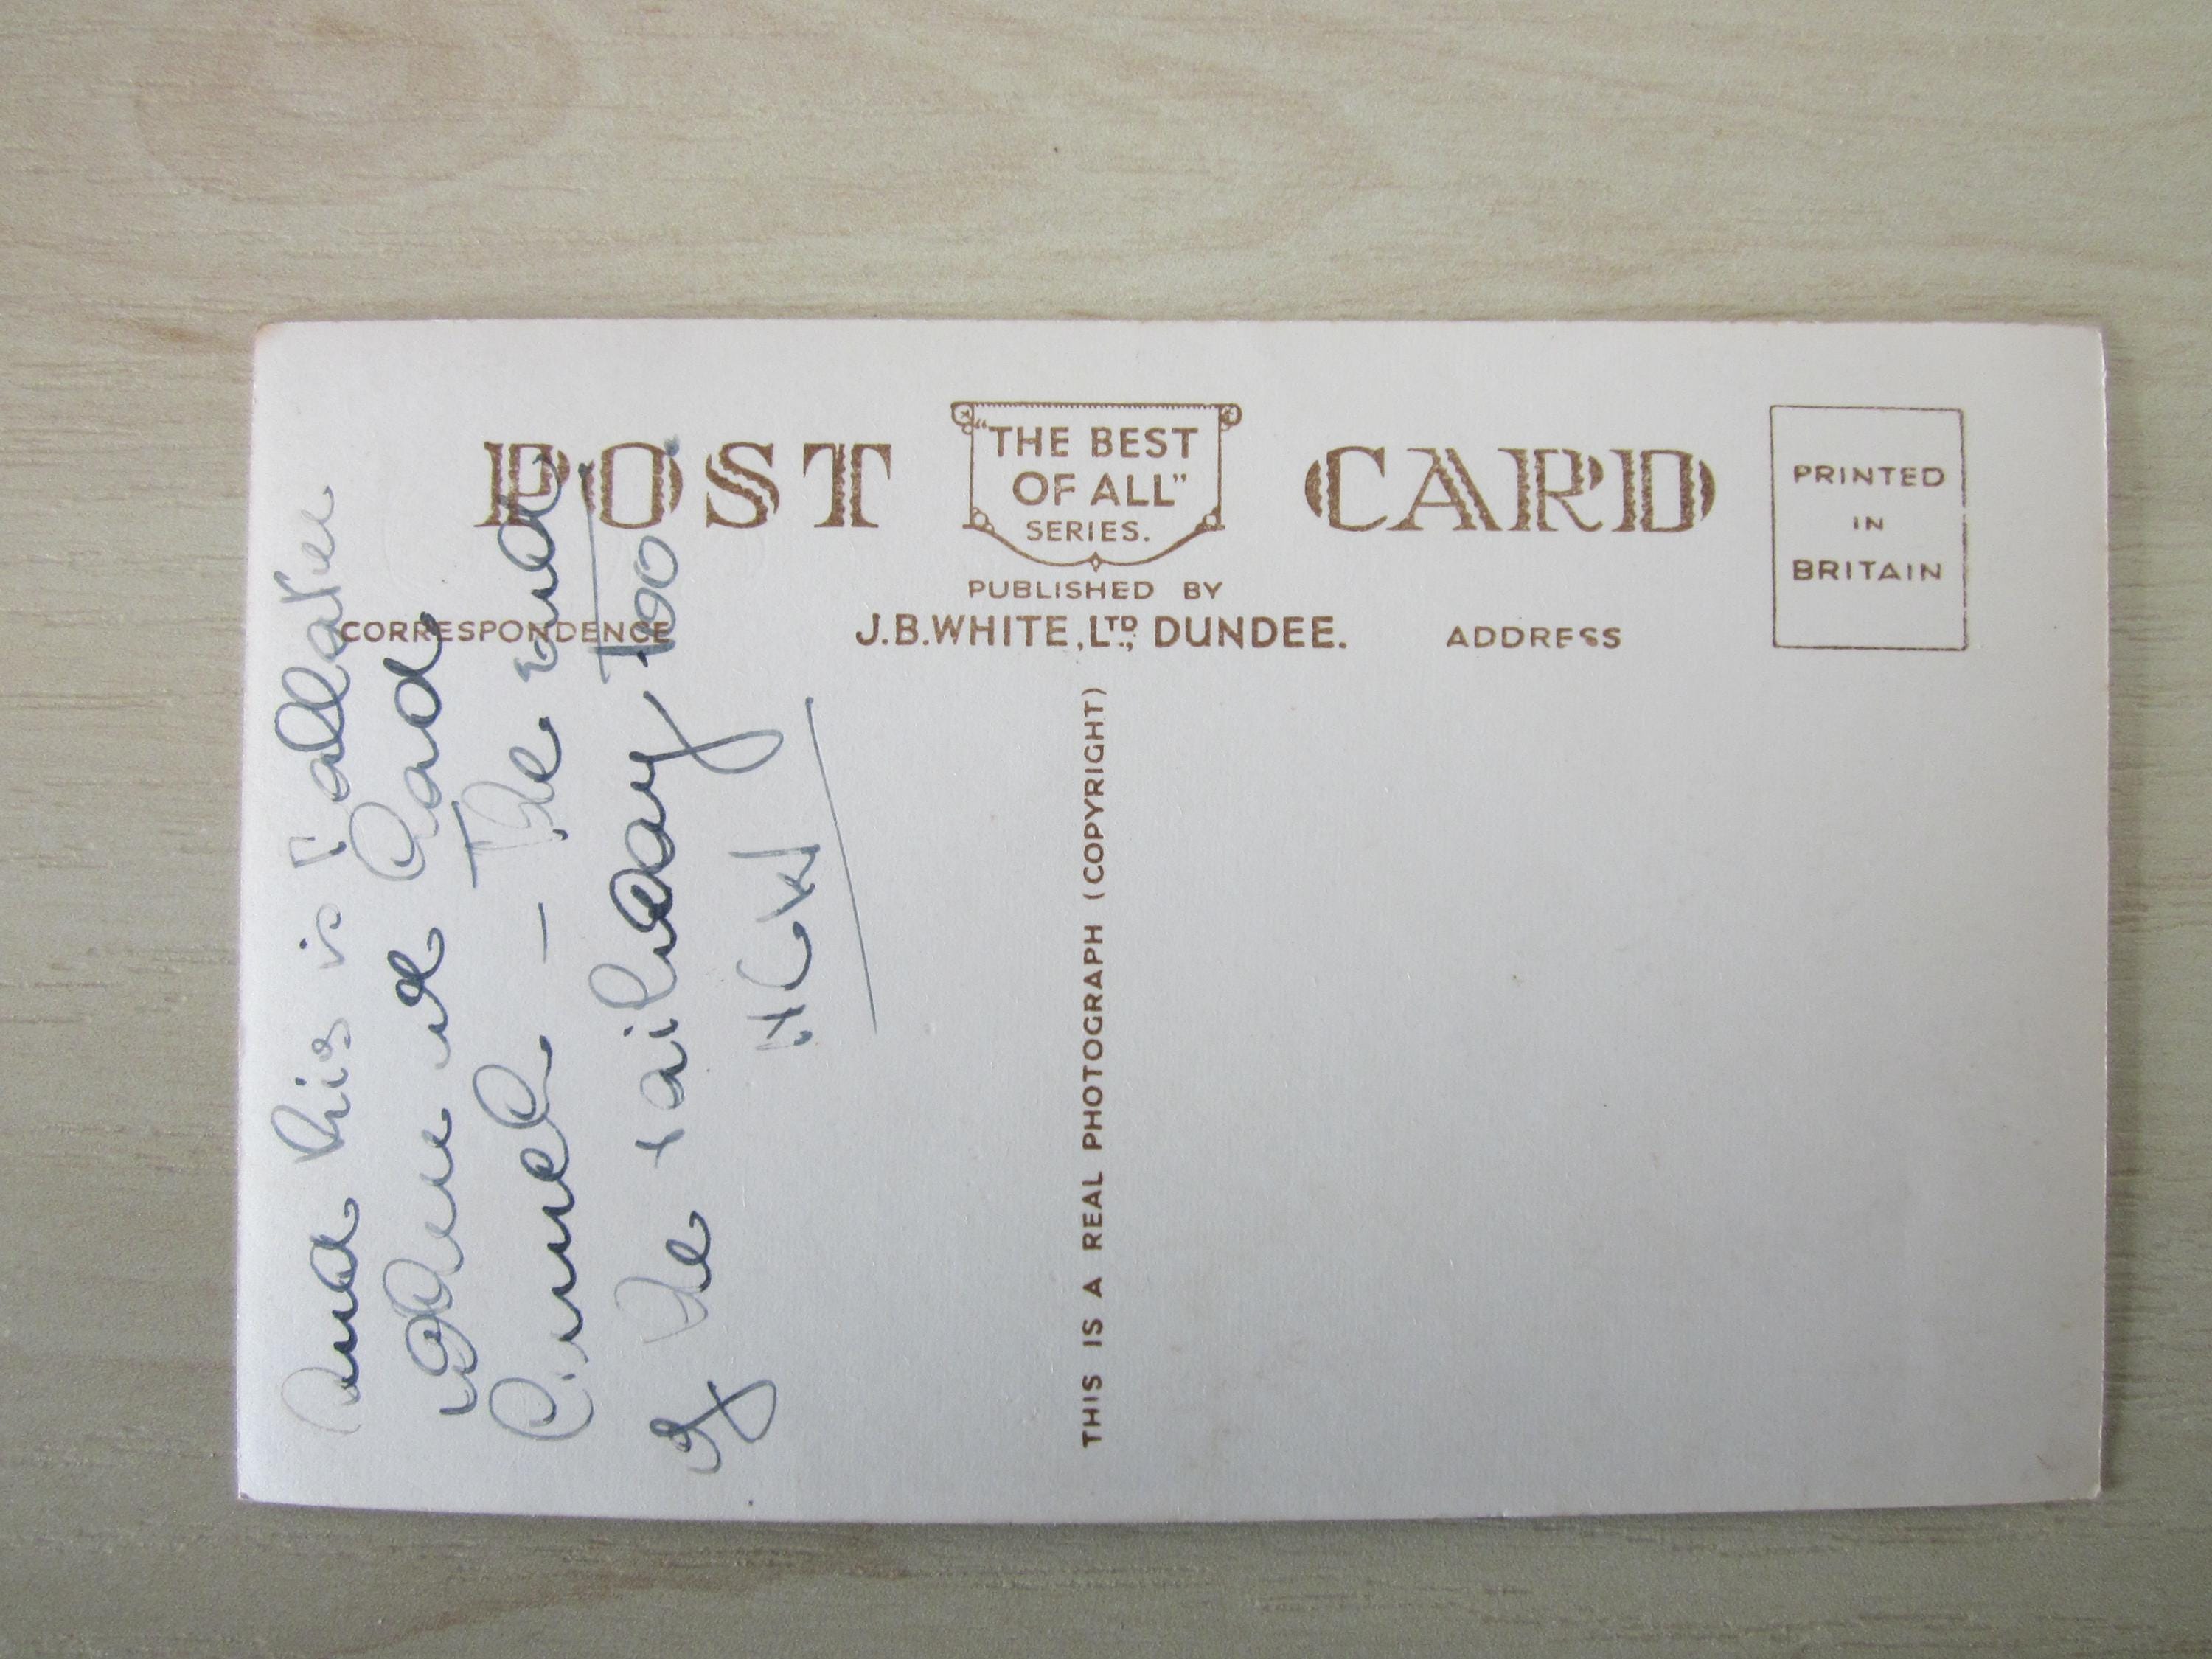 POST CARD
"THE BEST
OF ALL"
SERIES.
PUBLISHED BY
J.B.WHITE, LTD., DUNDEE.
CORRESPONDENCE
ADDRESS
PRINTED
IN
BRITAIN
THIS IS A REAL PHOTOGRAPH (COPYRIGHT)
And this is Ballater
where we had
lunch – The end
of the railway too
HCW